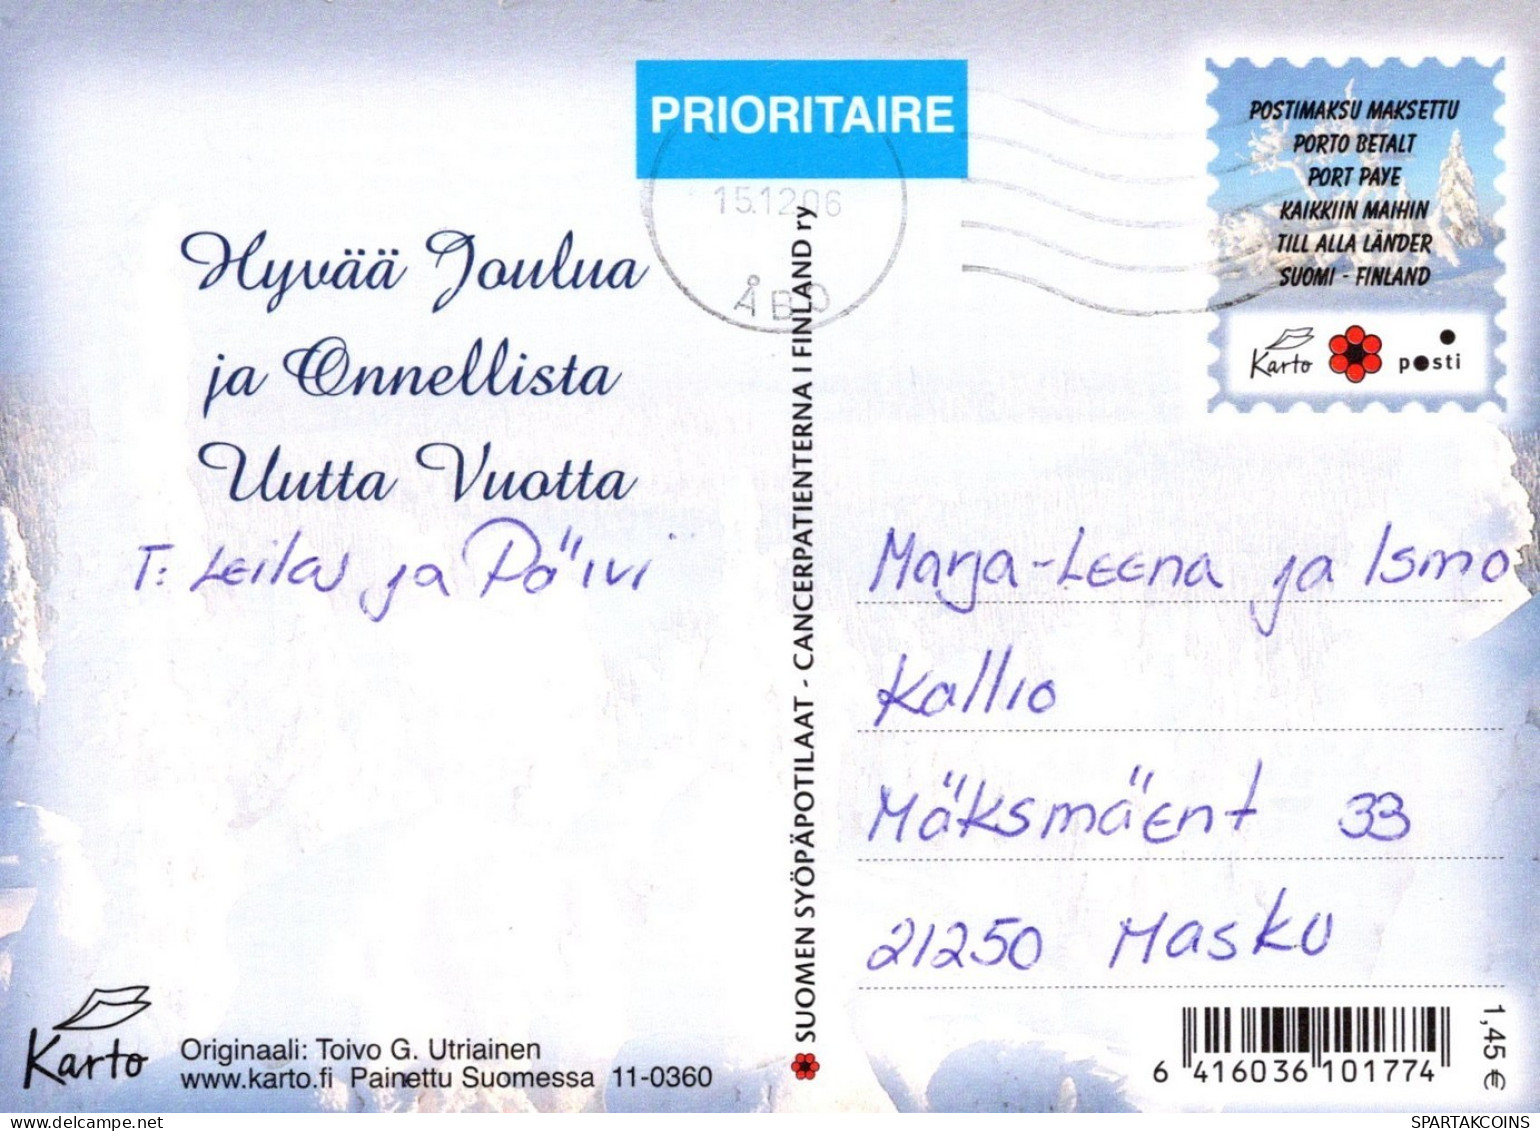 PRIORITAIRE
15.12.06
ÅBO
POSTIMAKSU MAKSETTU
PORTO BETALT
PORT PAYE
KAIKKIIN MAIHIN
TILL ALLA LÄNDER
SUOMI - FINLAND
Karto
posti
Hyvää Joulua
ja Onnellista
Uutta Vuotta
T: Leila ja Päivi
SUOMEN SYÖPÄPOTILAAT - CANCERPATIENTERNA I FINLAND ry
Marja-Leena ja Ismo
Kallio
Mäksmäent 33
21250 Masku
Karto
Originaali: Toivo G. Utriainen
www.karto.fi Painettu Suomessa 11-0360
6 416036 101774
1,45 €
delcampe.net
SPARTAKCOINS